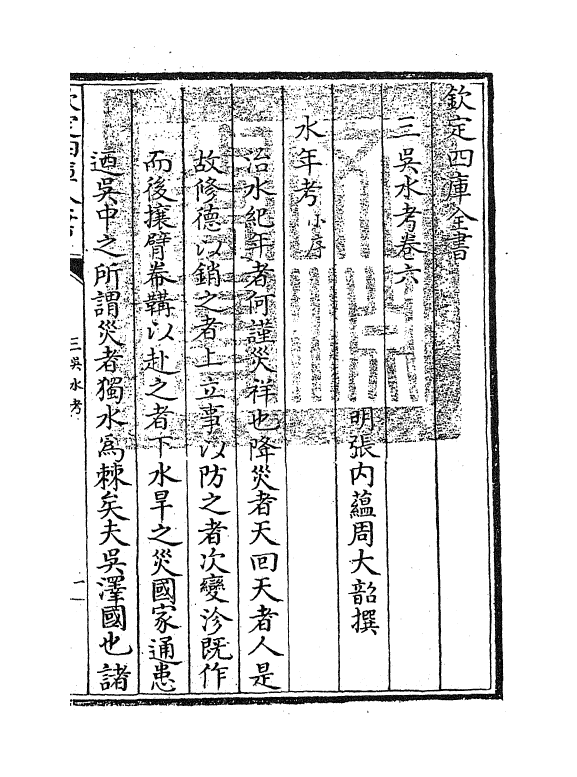 欽定四庫全書
三吳水考卷六
明張内蘊周大韶撰
水年考小序
治水紀年者何謹災祥也降災者天回天者人是
故修德以銷之者上立事以防之者次變沴既作
而後攘臂帣韝以赴之者下水旱之災國家通患
迺吳中之所謂災者獨水為棘矣夫吳澤國也諸
欽定四庫全書
三吳水考
一